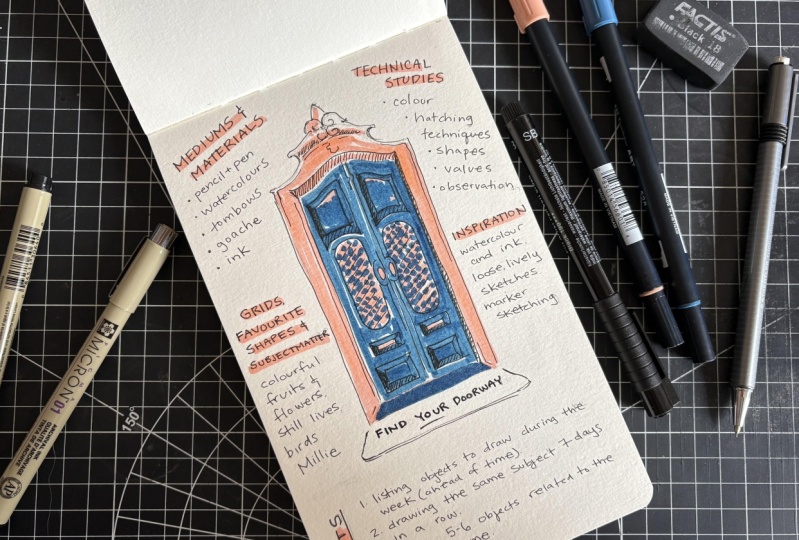 MEDIUMS &
MATERIALS
• pencil + pen
• watercolours
• tombows
• goache
• ink
TECHNICAL
STUDIES
• colour
• hatching
techniques
• shapes
• values
• observation
INSPIRATION
watercolour
and ink,
loose, lively
sketches
marker
sketching
GRIDS,
FAVOURITE
SHAPES &
SUBJECTMATTER
colourful
fruits &
flowers.
still lives
birds
Millie
FIND YOUR DOORWAY
1. listing objects to draw during the
week (ahead of time)
2. drawing the same subject 7 days
in a row.
5-6 objects related to the
FACTIS
Black 18
SB
MICRON 01
150°